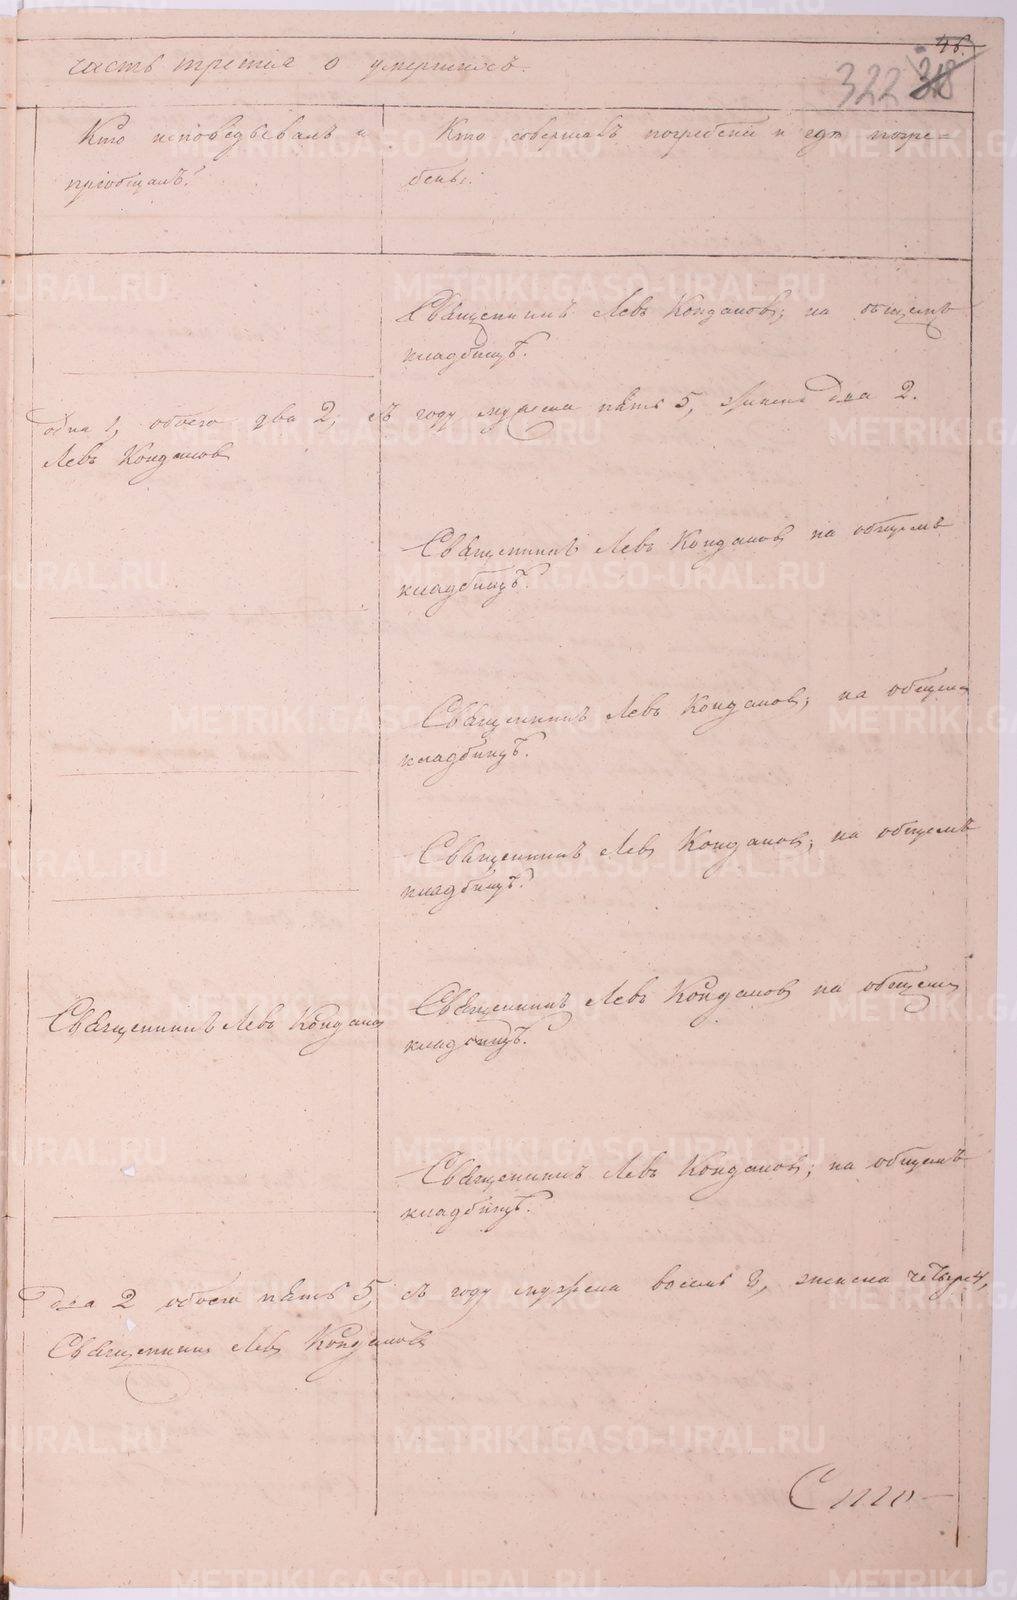 46.
часть третія о умершихъ.
322 318
Кто исповѣдывалъ и
пріобщалъ.
Кто совершалъ погребеніе и гдѣ погре-
бены.
Священникъ Левъ Конданов; на общемъ
кладбищѣ.
одна 1, обоего два 2; въ году мужеска пять 5, женска два 2.
Левъ Конданов
Священникъ Левъ Конданов на общемъ
кладбищѣ.
Священникъ Левъ Конданов; на общем
кладбищѣ.
Священникъ Левъ Конданов; на общемъ
кладбищѣ.
Священникъ Левъ Конданов
Священникъ Левъ Конданов на общем
кладбищѣ.
Священникъ Левъ Конданов; на общемъ
кладбищѣ.
два 2 обоего пять 5, въ году мужеска восемь 8, женска четыре 4,
Священникъ Левъ Конданов
METRIKI.GASO-URAL.RU